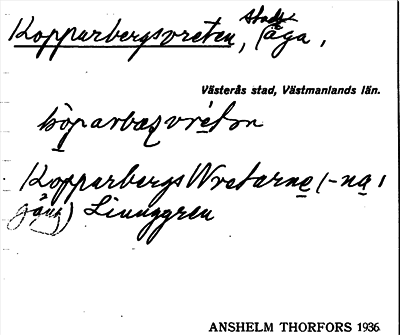 Kopparbergsvreten, stads
äga,
Västerås stad, Västmanlands län.
köparbæsvréton
KopparbergsWretarne (-na 1
gång) Linnggren
ANSHELM THORFORS 1936.